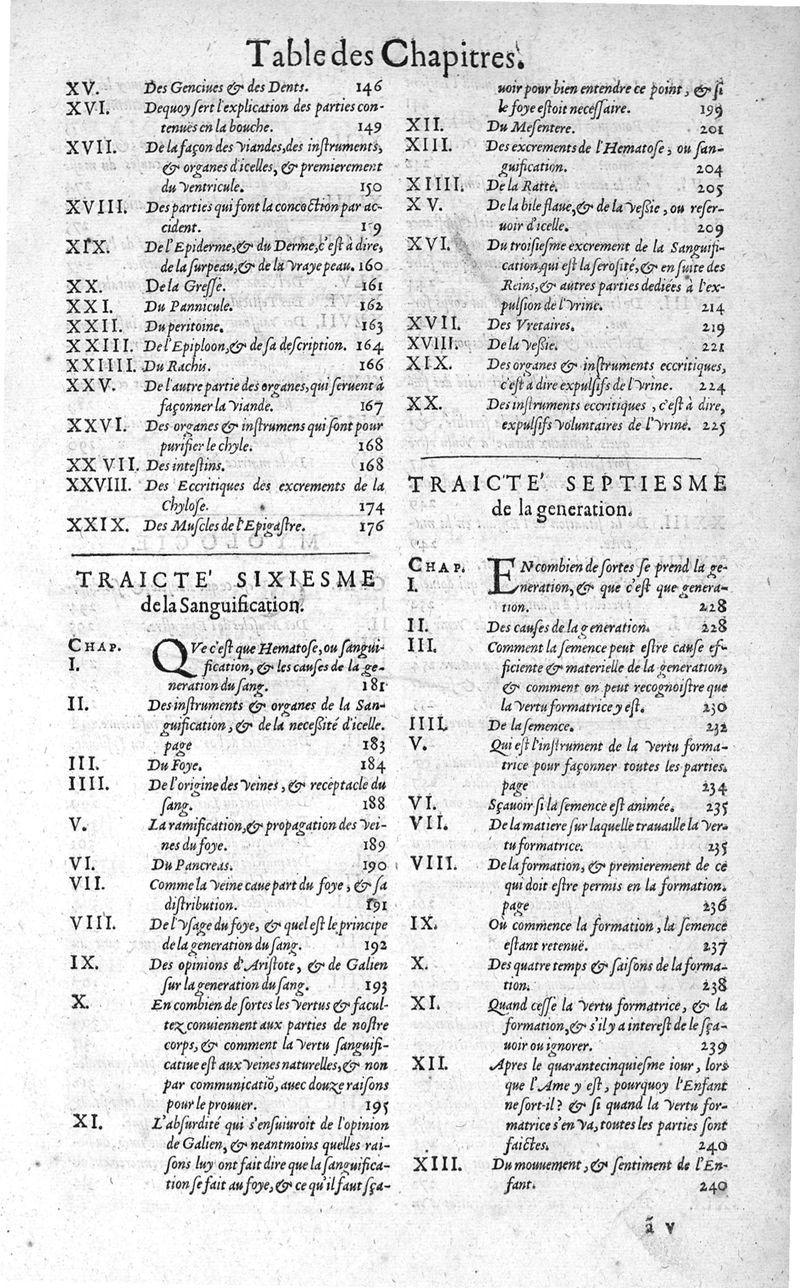 Table des Chapitres.
XV. Des Genciues & des Dents. 146
XVI. Dequoy sert l'explication des parties con-
tenues en la bouche. 149
XVII. De la façon des viandes, des instruments,
& organes d'icelles, & premierement
du ventricule. 150
XVIII. Des parties qui font la concoction par ac-
cident.
XIX. De l'Epiderme, & du Derme, c'est à dire,
de la surpeau, & de la vraye peau. 160
XX. De la Gresse. 161
XXI. Du Pannicule. 162
XXII. Du peritoine. 163
XXIII. De l'Epiploon, & de sa description. 164
XXIIII. Du Rachis. 166
XXV. De l'autre partie des organes, qui seruent à
façonner la viande. 167
XXVI. Des organes & instrumens qui sont pour
purifier le chyle. 168
XXVII. Des intestins. 168
XXVIII. Des Eccritiques des excrements de la
Chylose. 174
XXIX. Des Muscles de l'Epigastre. 176
TRAICTE' SIXIESME
de la Sanguification.
CHAP. QVe c'est que Hematose, ou sangui-
I. fication, & les causes de la ge-
neration du sang. 181
II. Des instruments & organes de la San-
guification, & de la necessité d'icelle.
page 183
III. Du Foye. 184
IIII. De l'origine des veines, & receptacle du
sang. 188
V. La ramification, & propagation des vei-
nes du foye. 189
VI. Du Pancreas. 190
VII. Comme la veine caue part du foye, & sa
distribution. 191
VIII. De l'vsage du foye, & quel est le principe
de la generation du sang. 192
IX. Des opinions d'Aristote, & de Galien
sur la generation du sang. 193
X. En combien de sortes les vertus & facul-
tez conuiennent aux parties de nostre
corps, & comment la vertu sanguifi-
catiue est aux veines naturelles, & non
par communicatiõ, auec douze raisons
pour le prouuer. 195
XI. L'absurdité qui s'ensuiuroit de l'opinion
de Galien, & neantmoins quelles rai-
sons luy ont fait dire que la sanguifica-
tion se fait au foye, & ce qu'il faut sça-
uoir pour bien entendre ce point, & si
le foye estoit necessaire. 199
XII. Du Mesentere. 201
XIII. Des excrements de l'Hematose, ou san-
guification. 204
XIIII. De la Ratte. 205
XV. De la bile flaue, & de la vessie, ou reser-
uoir d'icelle. 209
XVI. Du troisiesme excrement de la Sanguifi-
cation, qui est la serosité, & en suite des
Reins, & autres parties dediées à l'ex-
pulsion de l'vrine. 214
XVII. Des Vretaires. 219
XVIII. De la vessie. 221
XIX. Des organes & instruments eccritiques,
c'est à dire expulsifs de l'vrine. 224
XX. Des instruments eccritiques, c'est à dire,
expulsifs voluntaires de l'vrine. 225
TRAICTE' SEPTIESME
de la generation.
CHAP. EN combien de sortes se prend la ge-
I. neration, & que c'est que genera-
tion. 228
II. Des causes de la generation. 228
III. Comment la semence peut estre cause ef-
ficiente & materielle de la generation,
& comment on peut recognoistre que
la vertu formatrice y est. 230
IIII. De la semence. 232
V. Qui est l'instrument de la vertu forma-
trice pour façonner toutes les parties.
page 234
VI. Sçauoir si la semence est animée. 235
VII. De la matiere sur laquelle trauaille la ver-
tu formatrice. 235
VIII. De la formation, & premierement de ce
qui doit estre permis en la formation.
page 236
IX. Où commence la formation, la semence
estant retenuë. 237
X. Des quatre temps & saisons de la forma-
tion. 238
XI. Quand cesse la vertu formatrice, & la
formation, & s'il y a interest de le sça-
uoir ou ignorer. 239
XII. Apres le quarantecinquiesme iour, lors
que l'Ame y est, pourquoy l'Enfant
ne sort-il? & si quand la vertu for-
matrice s'en va, toutes les parties sont
faictes. 240
XIII. Du mouuement, & sentiment de l'En-
fant. 240
ã v